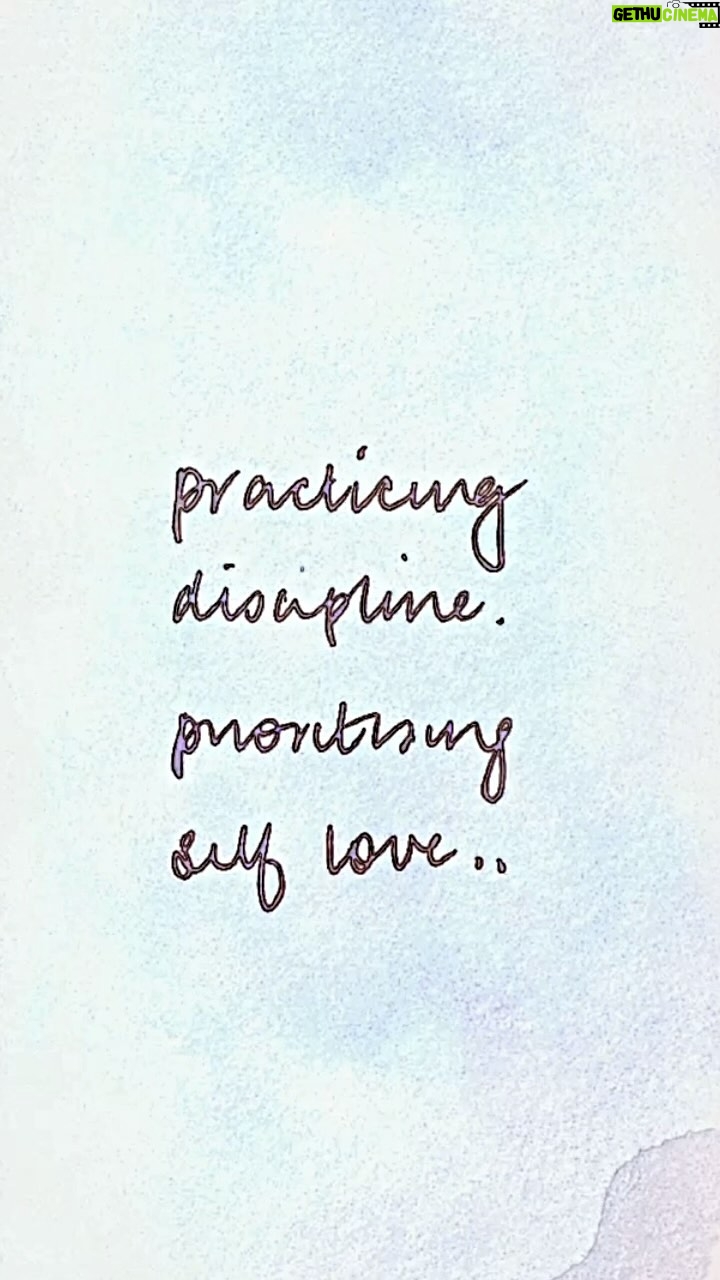 GETHUCINEMA
practicing
discipline.
prioritising
self love..